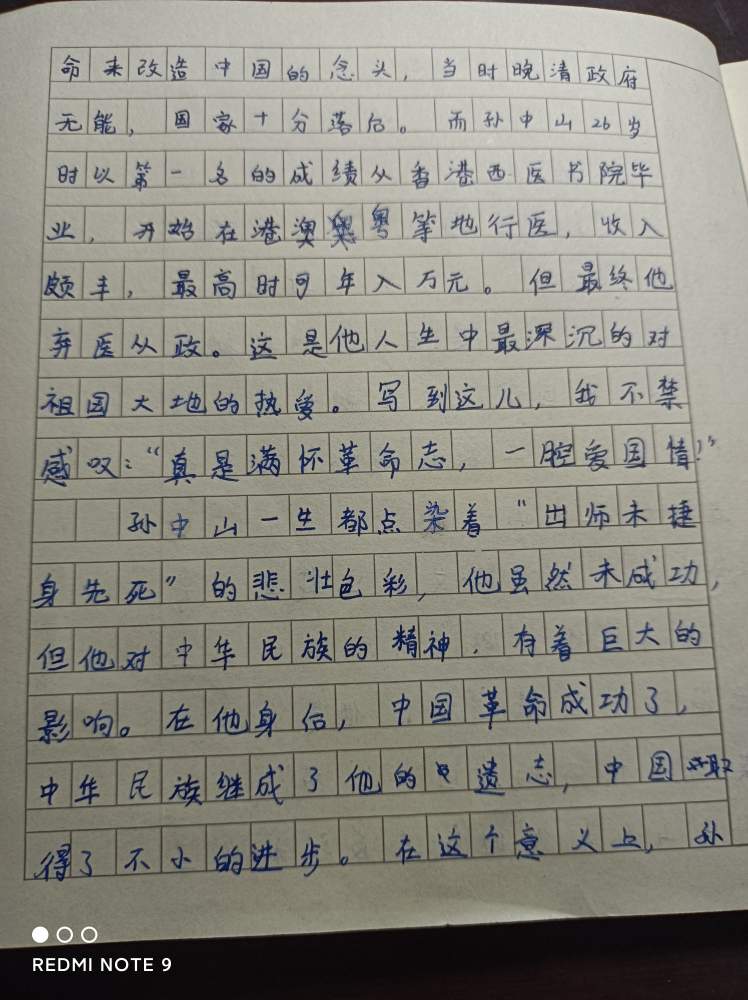 命来改造中国的念头，当时晚清政府
无能，国家十分落后。而孙中山26岁
时以第一名的成绩从香港西医书院毕
业，开始在港澳粤等地行医，收入
颇丰，最高时可年入万元。但最终他
弃医从政。这是他人生中最深沉的对
祖国大地的热爱。写到这儿，我不禁
感叹：“真是满怀革命志，一腔爱国情！”
孙中山一生都点染着“出师未捷
身先死”的悲壮色彩，他虽然未成功，
但他对中华民族的精神，有着巨大的
影响。在他身后，中国革命成功了，
中华民族继成了他的遗志，中国取
得了不小的进步。在这个意义上，孙
REDMI NOTE 9